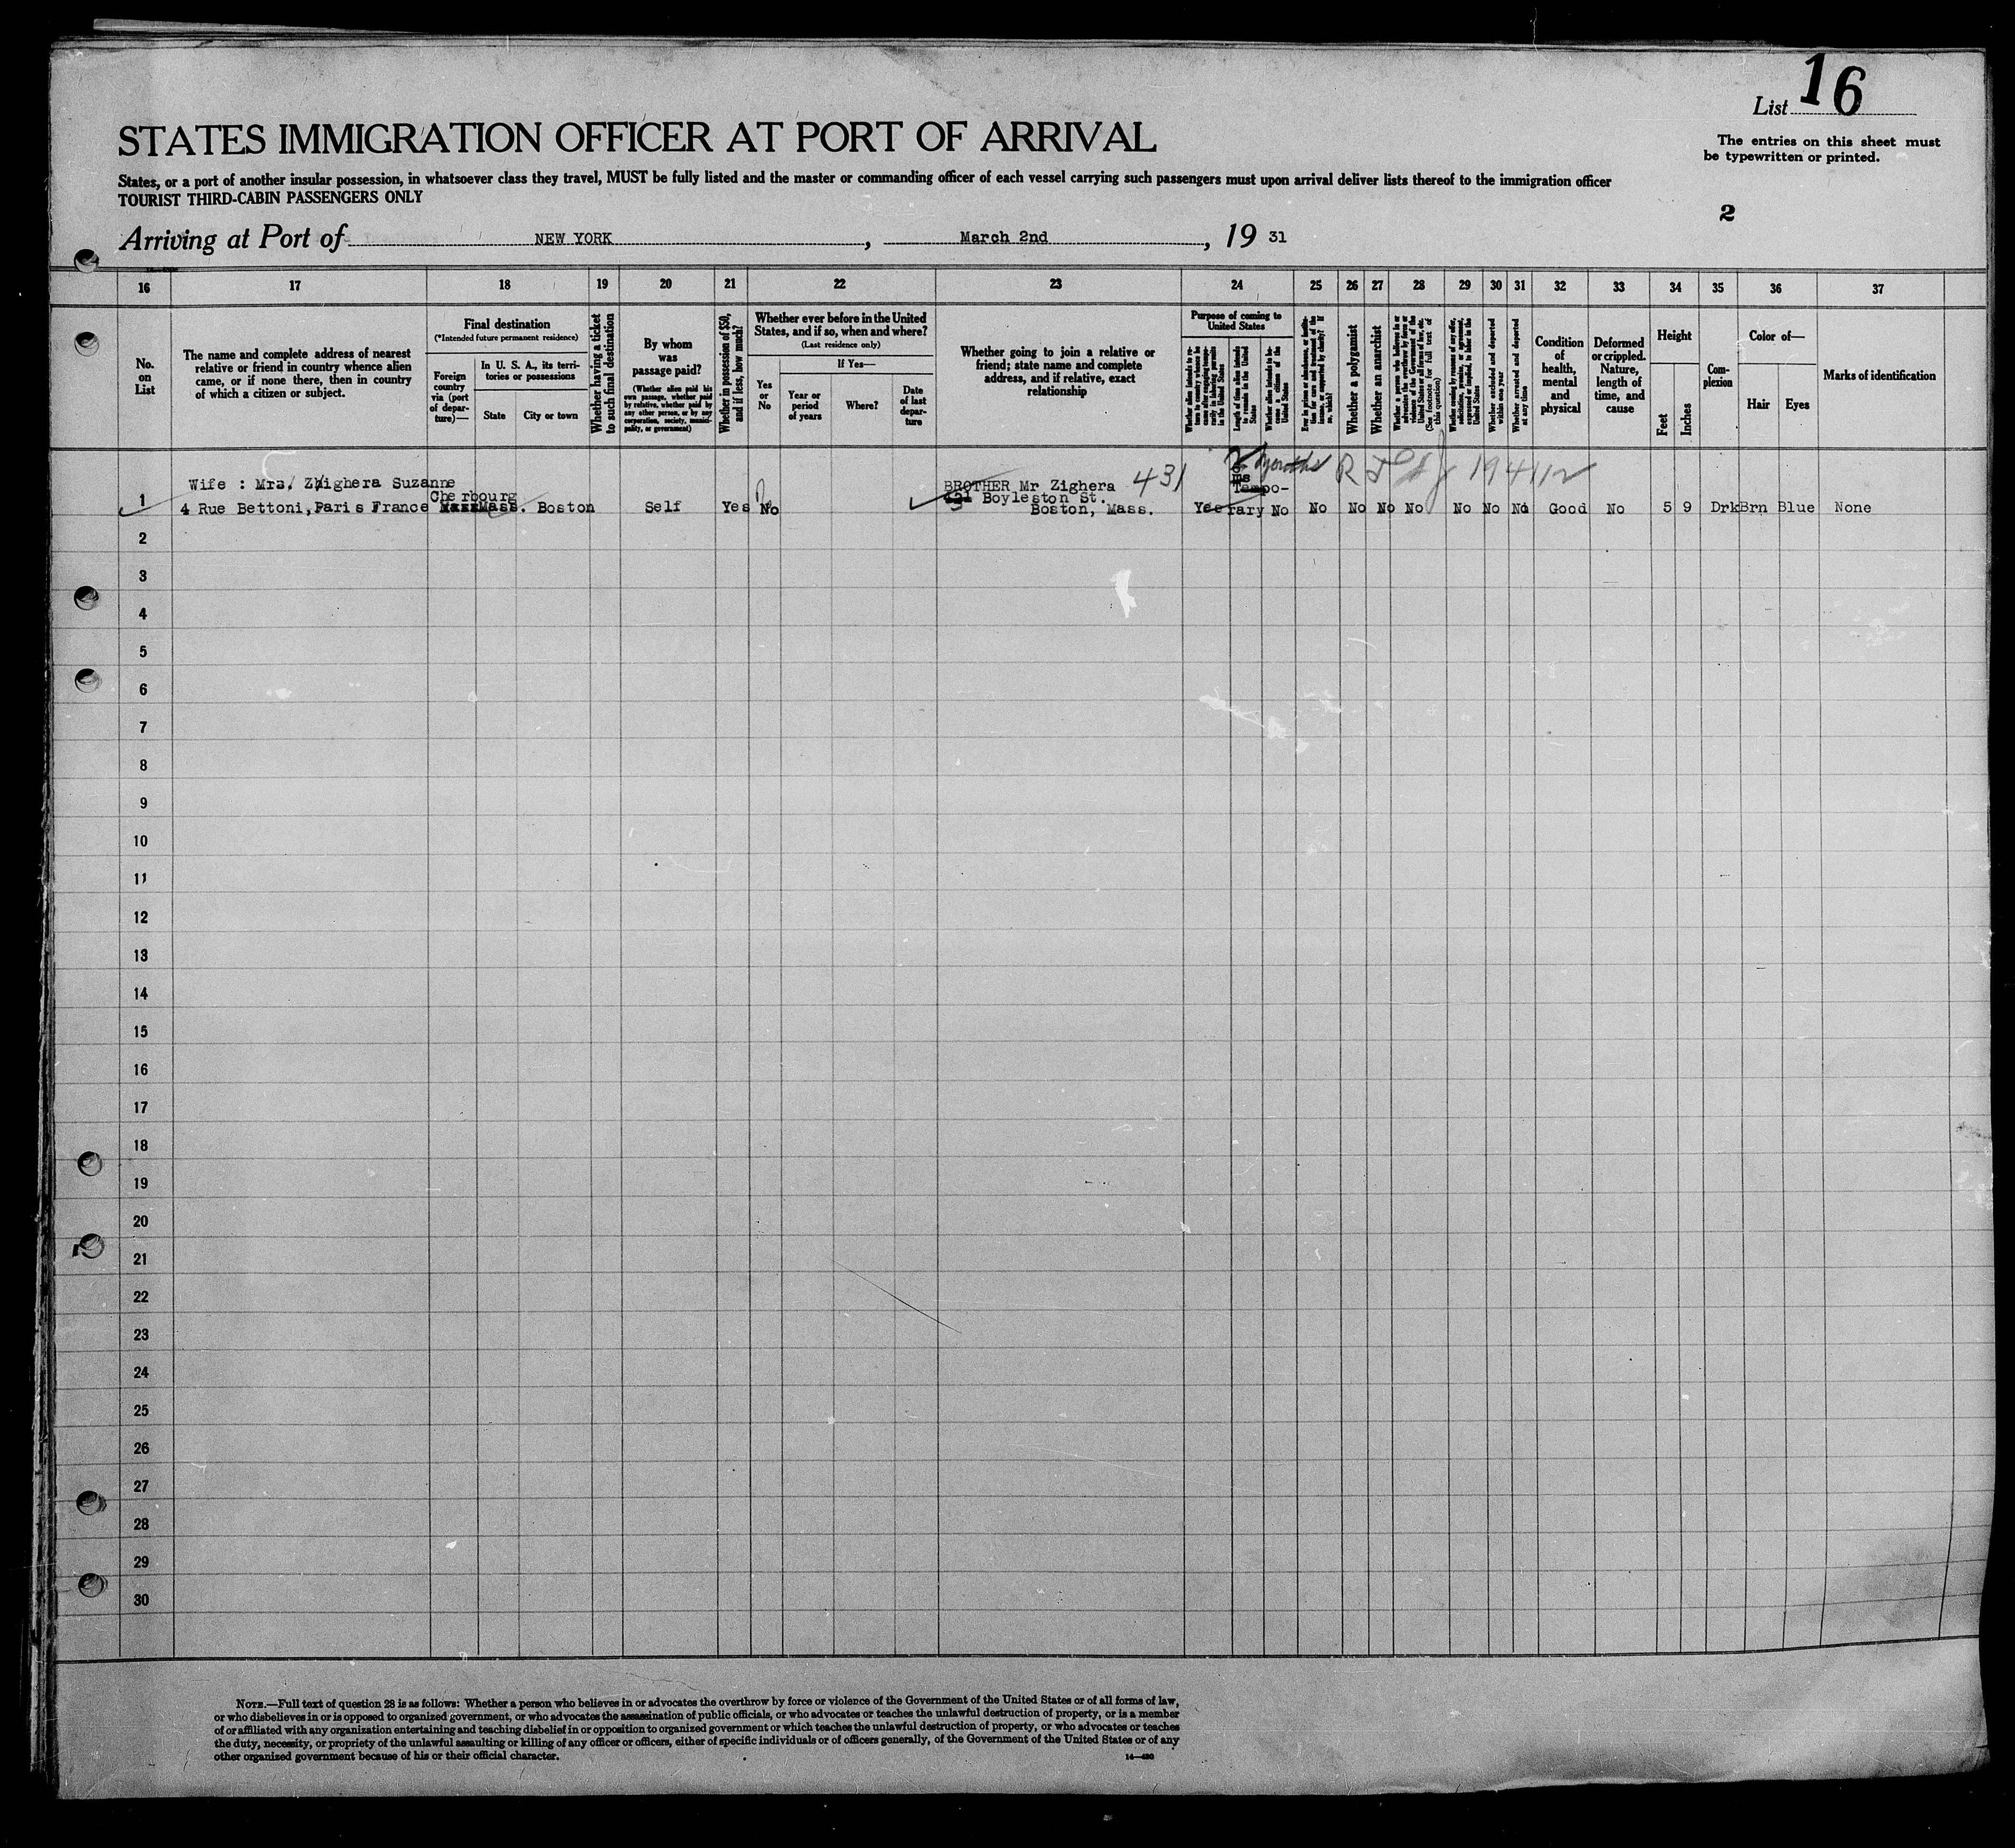 List 16
STATES IMMIGRATION OFFICER AT PORT OF ARRIVAL
The entries on this sheet must
be typewritten or printed.
States, or a port of another insular possession, in whatsoever class they travel, MUST be fully listed and the master or commanding officer of each vessel carrying such passengers must upon arrival deliver lists thereof to the immigration officer
TOURIST THIRD-CABIN PASSENGERS ONLY
2
Arriving at Port of NEW YORK, March 2nd, 19 31
16 17 18 19 20 21 22 23 24 25 26 27 28 29 30 31 32 33 34 35 36 37
No.
on
List
The name and complete address of nearest
relative or friend in country whence alien
came, or if none there, then in country
of which a citizen or subject.
Final destination
(*Intended future permanent residence)
Foreign
country
via (port
of depar-
ture)—
In U. S. A., its terri-
tories or possessions
State
City or town
Whether having a ticket
to such final destination
By whom
was
passage paid?
(Whether alien paid his
own passage, whether paid
by relative, whether paid by
any other person, or by any
corporation, society, munici-
pality, or government)
Whether in possession of $50,
and if less, how much?
Whether ever before in the United
States, and if so, when and where?
(Last residence only)
Yes
or
No
If Yes—
Year or
period
of years
Where?
Date
of last
depar-
ture
Whether going to join a relative or
friend; state name and complete
address, and if relative, exact
relationship
Purpose of coming to
United States
Whether alien intends to re-
turn to country whence he
came after engaging tempo-
rarily in laboring pursuits
in the United States
Length of time alien intends
to remain in the United
States
Whether alien intends to be-
come a citizen of the
United States
Whether a polygamist
Whether an anarchist
(See footnote for full text of
this question)
Whether excluded and deported
within one year
Whether arrested and deported
at any time
Condition
of
health,
mental
and
physical
Deformed
or crippled.
Nature,
length of
time, and
cause
Height
Feet
Inches
Com-
plexion
Color of—
Hair
Eyes
Marks of identification
Wife : Mrs. Zighera Suzanne
4 Rue Bettoni, Paris France
Cherbourg
Mass. Boston
Self
Yes
No
BROTHER Mr Zighera 431
Boyleston St.
Boston, Mass.
months
Tempo-
Yes rary No
No No No No No No No Good No 5 9 Drk Brn Blue None
1
2
3
4
5
6
7
8
9
10
11
12
13
14
15
16
17
18
19
20
21
22
23
24
25
26
27
28
29
30
NOTE.—Full text of question 28 is as follows: Whether a person who believes in or advocates the overthrow by force or violence of the Government of the United States or of all forms of law,
or who disbelieves in or is opposed to organized government, or who advocates the assassination of public officials, or who advocates or teaches the unlawful destruction of property, or is a member
of or affiliated with any organization entertaining and teaching disbelief in or opposition to organized government or which teaches the unlawful destruction of property, or who advocates or teaches
the duty, necessity, or propriety of the unlawful assaulting or killing of any officer or officers, either of specific individuals or of officers generally, of the Government of the United States or of any
other organized government because of his or their official character.
14—430